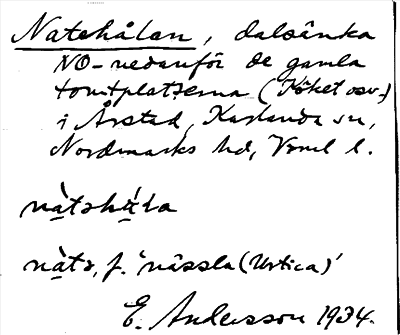 Natehålan, dalsänka
NO-nedanför de gamla
tomtplatserna (Köket osv.)
i Årstad, Karlanda sn,
Nordmarks hd, Vrml l.
nàtəhå̀la
nàtə, f. 'nässla (Urtica)'
E. Andersson 1934.